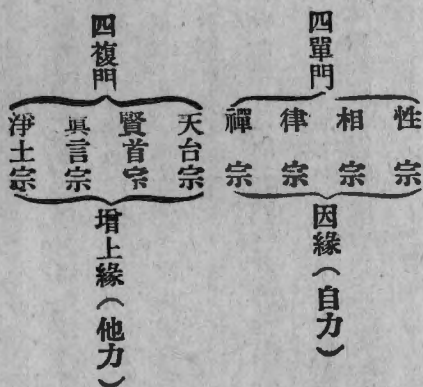 四單門
性宗
相宗
律宗
禪宗
因緣（自力）
四複門
天台宗
賢首宗
眞言宗
淨土宗
增上緣（他力）